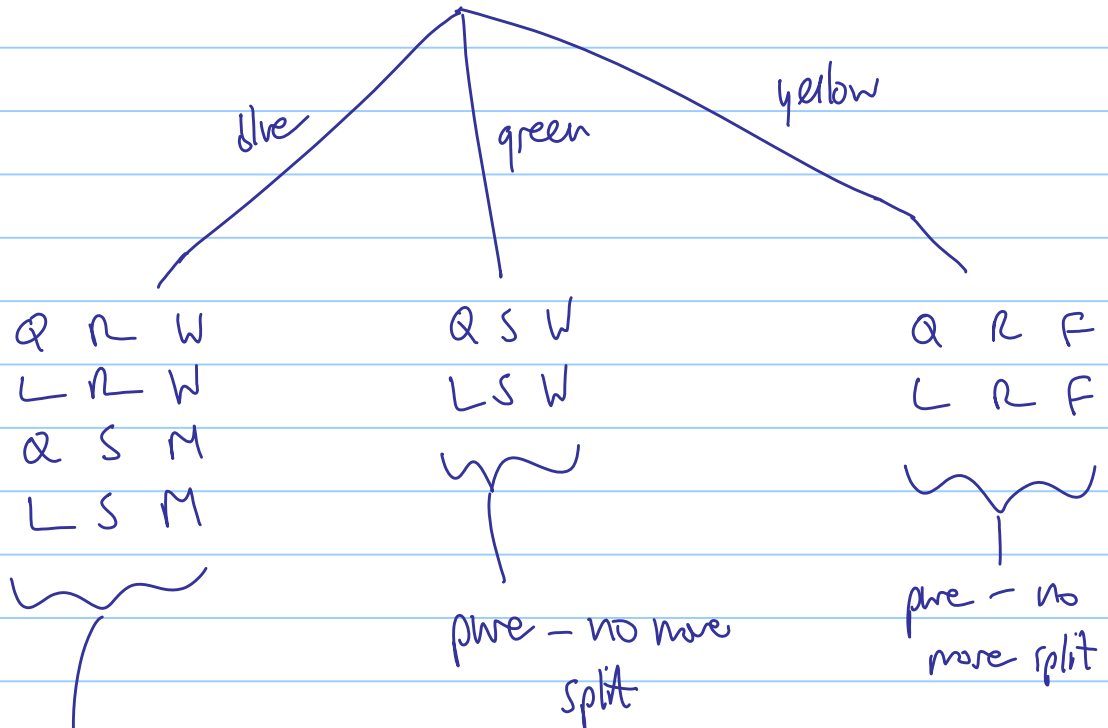 blue
green
yellow
Q R W
L R W
Q S M
L S M
Q S W
L S W
pure – no more
split
Q R F
L R F
pure – no
more split